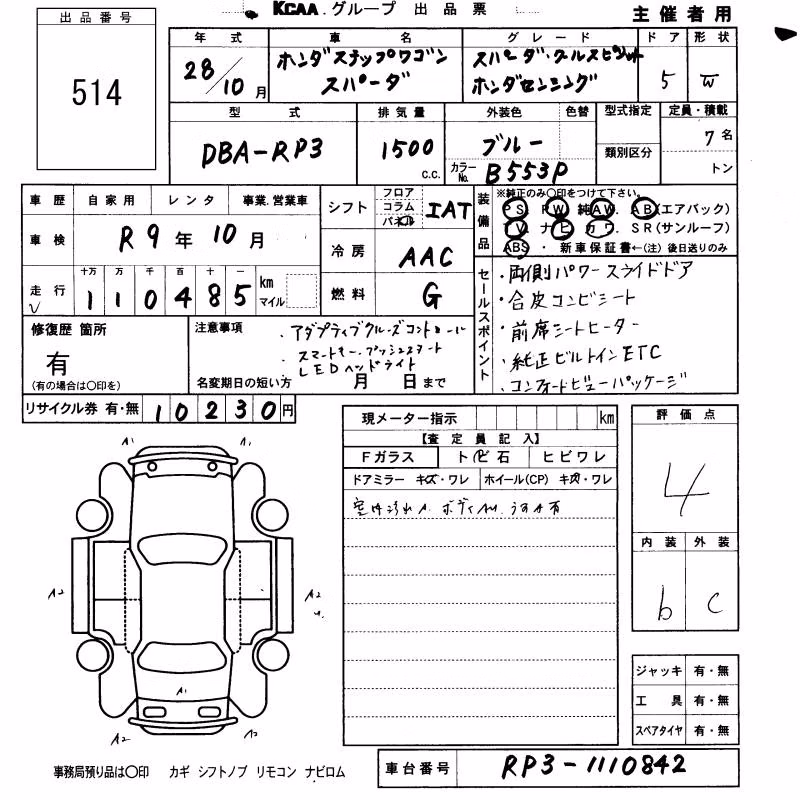 KCAA.グループ 出品票
主催者用
出品番号
514
年式 車名 グレード ドア 形状
28/10月 ホンダステップワゴン スパーダ・クールスピリット 5 W
スパーダ ホンダセンシング
型式 排気量 外装色 色替 型式指定 定員・積載
DBA-RP3 1500 c.c. ブルー 類別区分 7名
カラーNo. B553P トン
車歴 自家用 レンタ 事業.営業車
車検 R9年10月
走行 十万 万 千 百 十 一 km マイル
110485
シフト フロア コラム パネル IAT
冷房 AAC
燃料 G
装備品 ※純正のみ〇印をつけて下さい。
PS. PW. 純AW. AB(エアバック)
TV. ナビ. カワ. SR(サンルーフ)
ABS ・ 新車保証書←(注)後日送りのみ
セールスポイント
・両側パワースライドドア
・合皮コンビシート
・前席シートヒーター
・純正ビルトインETC
・コンフォートビューパッケージ
修復歴 箇所
有
(有の場合は〇印を)
注意事項
・アダプティブクルーズコントロール
・スマートキー.プッシュスタート
・LEDヘッドライト
名変期日の短い方 月 日まで
リサイクル券 有・無 10230円
現メーター指示 km
【査定員記入】
Fガラス トビ石 ヒビワレ
ドアミラー キズ・ワレ ホイール(CP) キズ・ワレ
室内汚れA. ボディAU.
評価点
4
内装 外装
b C
A1 A1
A2 A2
A1
A2 A2
ジャッキ 有・無
工具 有・無
スペアタイヤ 有・無
事務局預り品は〇印 カギ シフトノブ リモコン ナビロム
車台番号 RP3-1110842